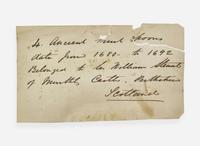 4 Ancient silver spoons
date from 1680 - to 1692
Belonged to Sir William Stewart
of Murthly Castle. Perthshire
Scotland